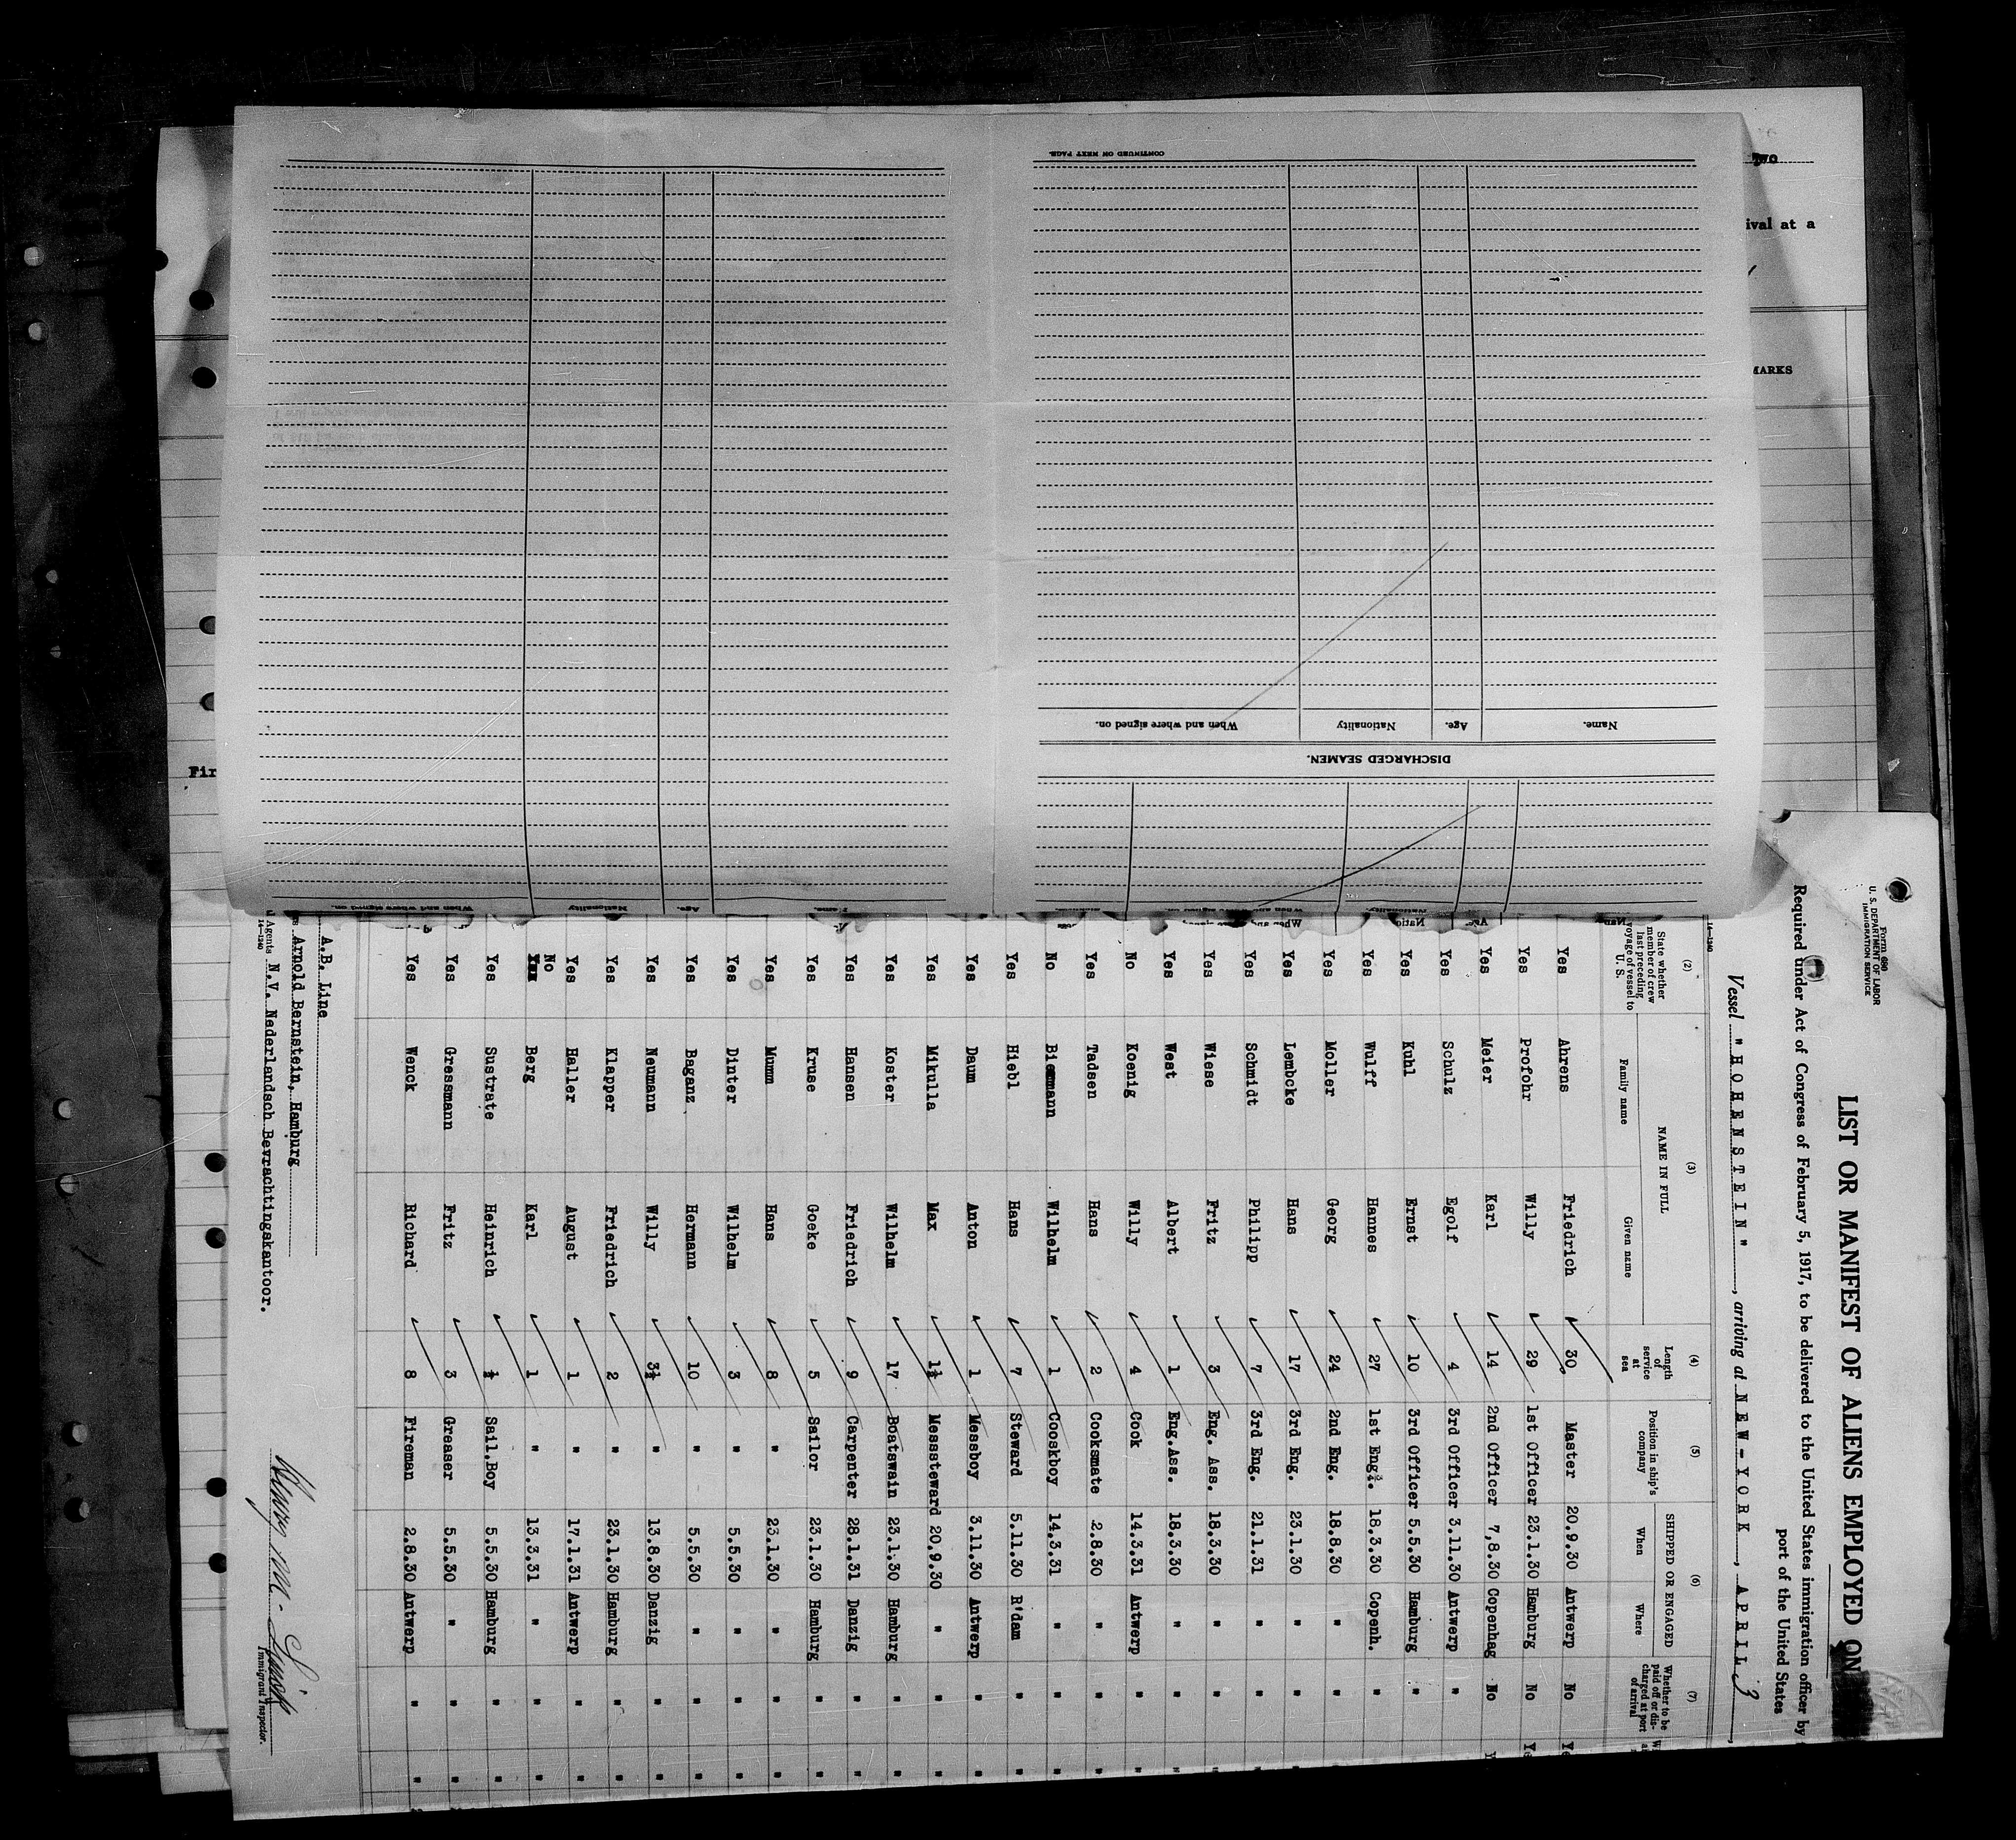 Two
ival at a
MARKS
Fir
CONTINUED ON NEXT PAGE.
When and where signed on. Nationality Age. Name.
DISCHARGED SEAMEN.
When and where signed on. Nationality Age. Name.
Form 680
U. S. DEPARTMENT OF LABOR
IMMIGRATION SERVICE
LIST OR MANIFEST OF ALIENS EMPLOYED ON
Required under Act of Congress of February 5, 1917, to be delivered to the United States immigration officer by
port of the United States
Vessel "HOHENSTEIN", arriving at NEW-YORK, APRIL 3
14—1240
(2) (3) (4) (5) (6) (7)
State whether member of crew last preceding voyage of vessel to U. S. NAME IN FULL Family name Given name Length of service at sea Position in ship's company SHIPPED OR ENGAGED When Where Whether to be paid off or discharged at port of arrival
Yes Ahrens Friedrich 30 Master 20.9.30 Antwerp No Ye
Yes Profohr Willy 29 1st Officer 23.1.30 Hamburg No Ye
Yes Meier Karl 14 2nd Officer 7,8.30 Copenhag No Y
Yes Schulz Egolf 4 3rd Officer 3.11.30 Antwerp "
Yes Kuhl Ernst 10 3rd Officer 5.5.30 Hamburg "
Yes Wulff Hannes 27 1st Eng. 18.3.30 Copenh. "
Yes Moller Georg 24 2nd Eng. 18.8.30 " "
Yes Lembcke Hans 17 3rd Eng. 23.1.30 " "
Yes Schmidt Philipp 7 3rd Eng. 21.1.31 " "
Yes Wiese Fritz 3 Eng. Ass. 18.3.30 " "
Yes West Albert 1 Eng.Ass. 18.3.30 " "
No Koenig Willy 4 Cook 14.3.31 Antwerp " "
Yes Tadsen Hans 2 Cooksmate 2.8.30 " " "
No Biermann Wilhelm 1 Cooskboy 14.3.31 " " "
Yes Hiebl Hans 7 Steward 5.11.30 R'dam " "
Yes Daum Anton 1 Messboy 3.11.30 Antwerp " "
Yes Mikulla Max 1½ Messsteward 20.9.30 " " "
Yes Koster Wilhelm 17 Boatswain 23.1.30 Hamburg " "
Yes Hansen Friedrich 9 Carpenter 28.1.31 Danzig " "
Yes Kruse Goeke 5 Sailor 23.1.30 Hamburg " "
Yes Mumm Hans 8 " 23.1.30 " " "
Yes Dinter Wilhelm 3 " 5.5.30 " " "
Yes Baganz Hermann 10 " 5.5.30 " " "
Yes Neumann Willy 3½ " 13.8.30 Danzig " "
Yes Klapper Friedrich 2 " 23.1.30 Hamburg " "
Yes Haller August 1 " 17.1.31 Antwerp " "
No
Yes Berg Karl 1 " 13.3.31 " " "
Yes Sustrate Heinrich ½ Sail.Boy 5.5.30 Hamburg " "
Yes Gressmann Fritz 3 Greaser 5.5.30 " " "
Yes Wenck Richard 8 Fireman 2.8.30 Antwerp " "
A.B. Line
Arnold Bernstein, Hamburg
Agents N.V. Nederlandsch Bevrachtingskantoor.
14—1240
Immigrant Inspector.